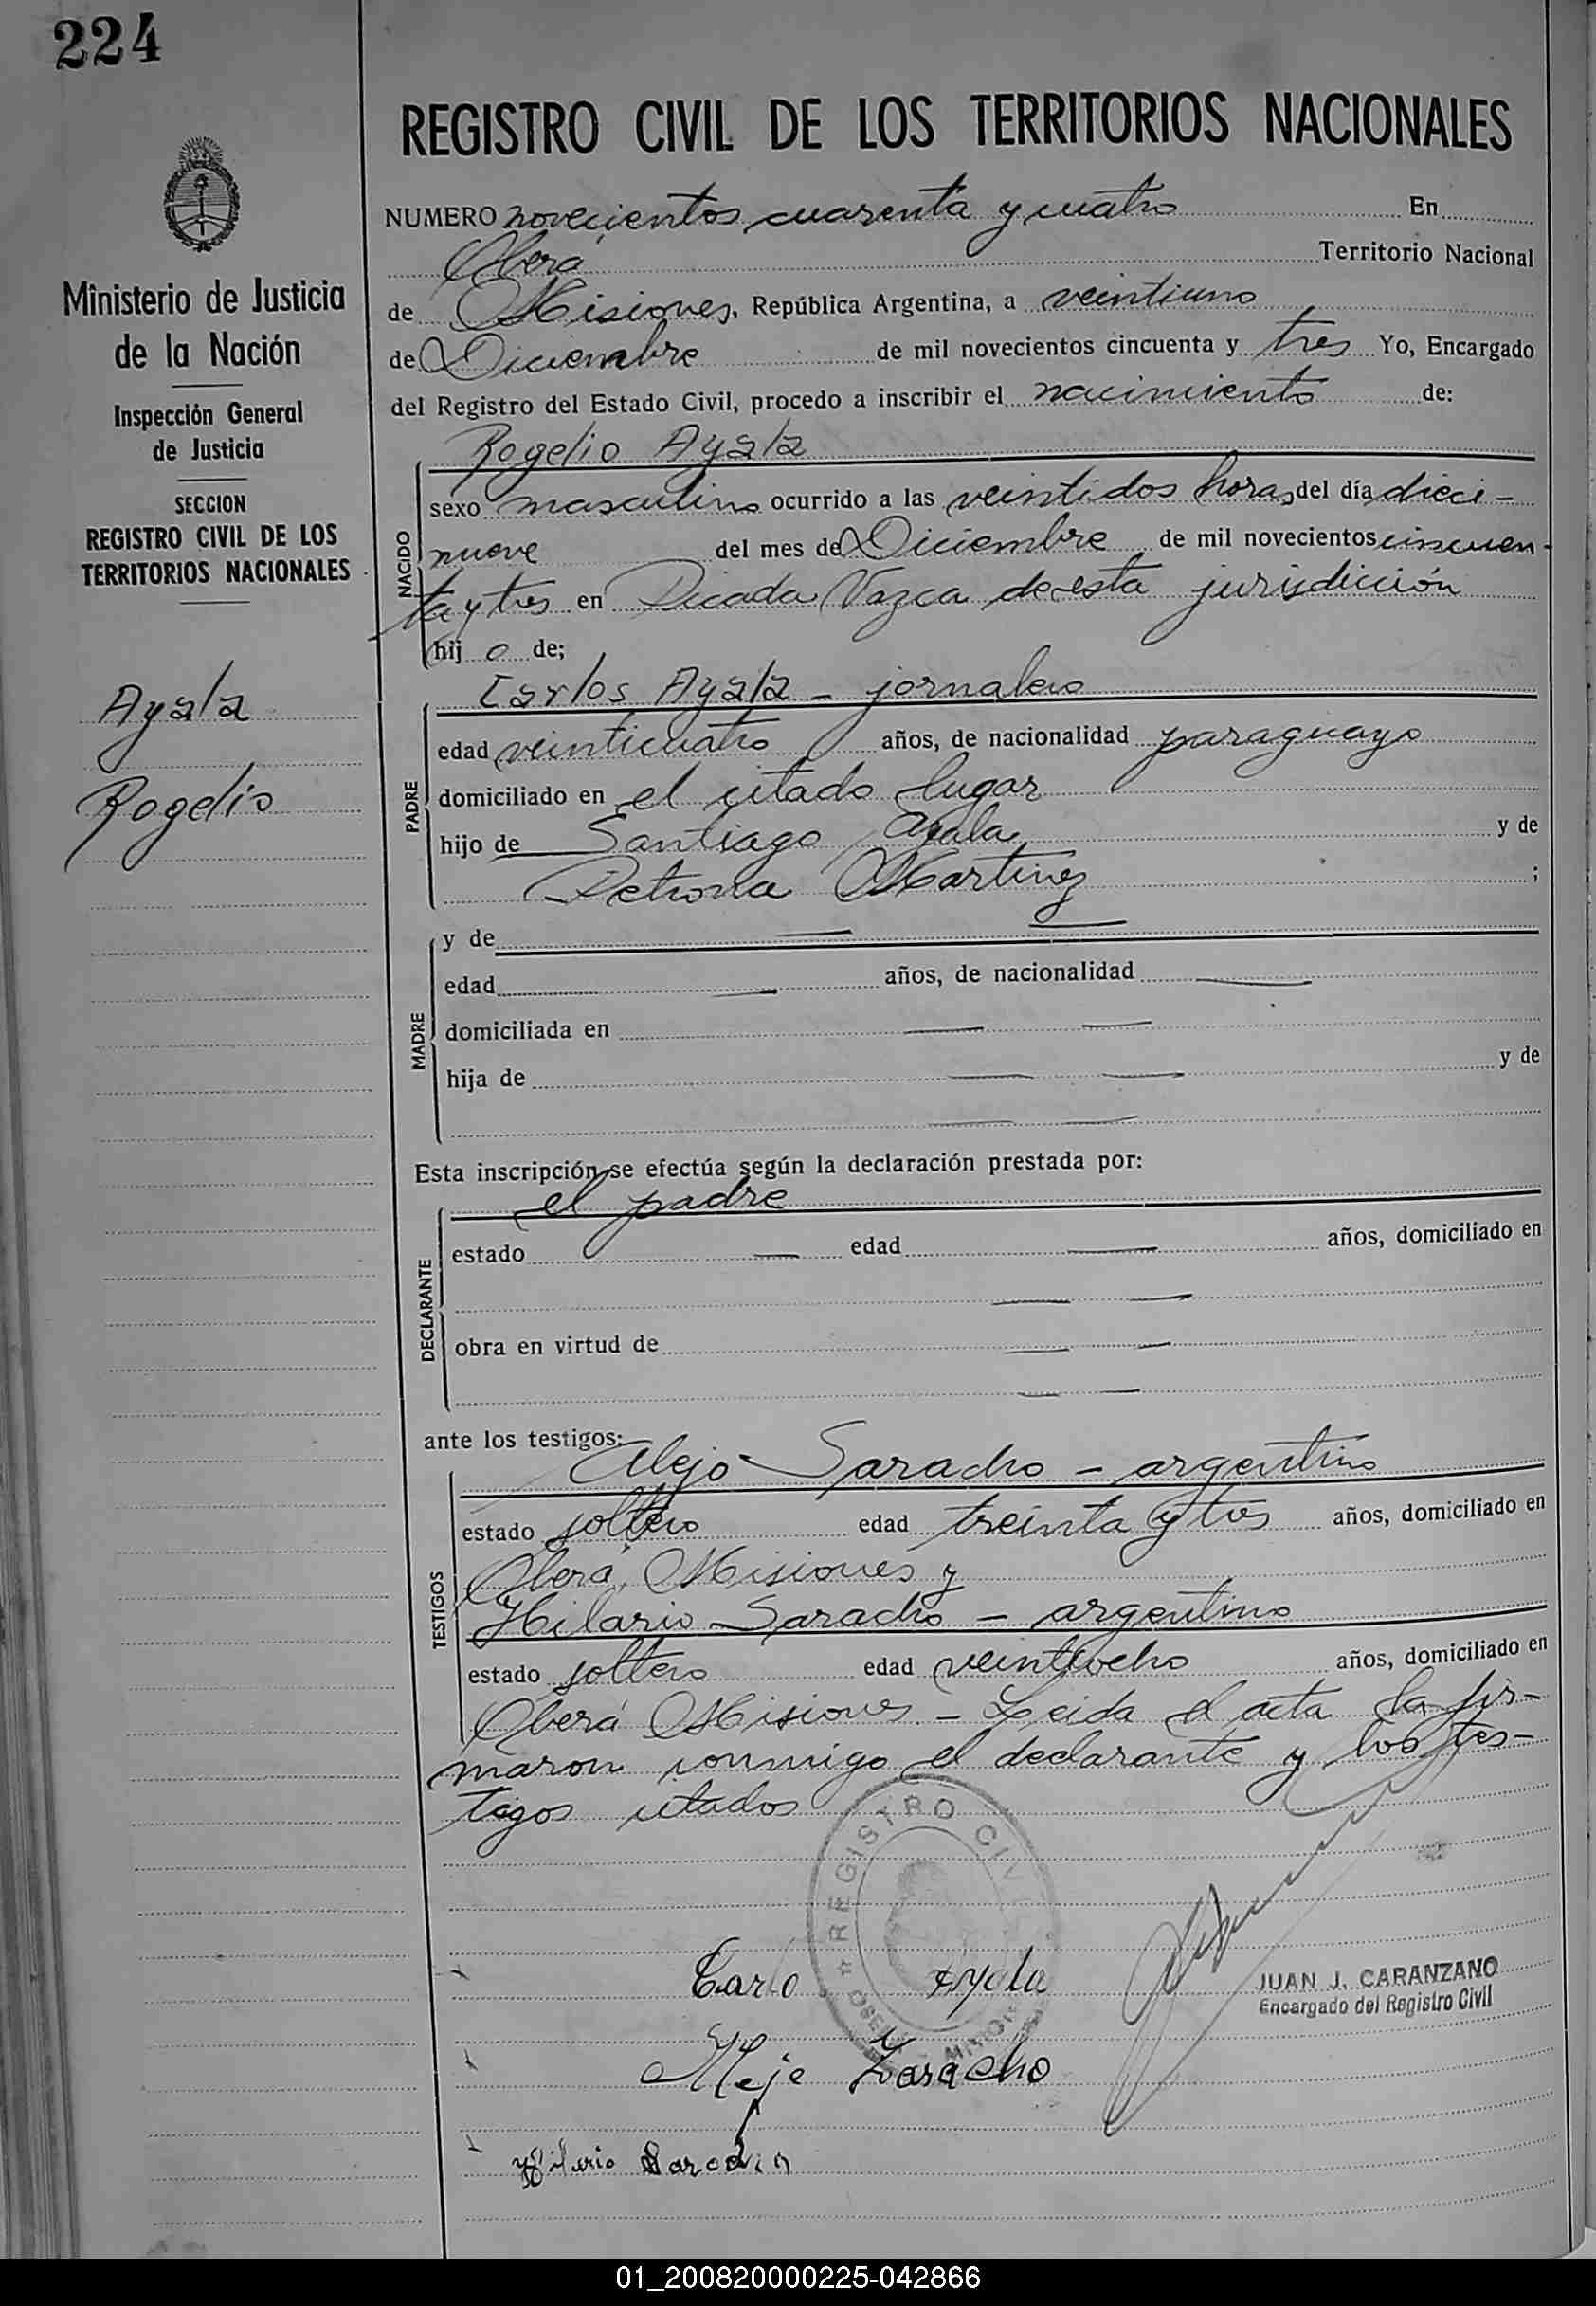 224
REGISTRO CIVIL DE LOS TERRITORIOS NACIONALES
Ministerio de Justicia
de la Nación
Inspección General
de Justicia
SECCION
REGISTRO CIVIL DE LOS
TERRITORIOS NACIONALES
Ayala
Rogelio
NUMERO novecientos cuarenta y cuatro En
Oberá Territorio Nacional
de Misiones, República Argentina, a veintiuno
de Diciembre de mil novecientos cincuenta y tres Yo, Encargado
del Registro del Estado Civil, procedo a inscribir el nacimiento de:
Rogelio Ayala
NACIDO
sexo masculino ocurrido a las veintidos horas del día dieci-
nueve del mes de Diciembre de mil novecientos cincuen-
ta y tres en Picada Vazca de esta jurisdicción
hij o de;
Carlos Ayala - jornalero
PADRE
edad veinticuatro años, de nacionalidad paraguayo
domiciliado en el citado lugar
hijo de Santiago Ayala y de
Petrona Martinez ;
MADRE
y de
edad años, de nacionalidad
domiciliada en
hija de y de
Esta inscripción se efectúa según la declaración prestada por:
el padre
DECLARANTE
estado edad años, domiciliado en
obra en virtud de
ante los testigos:
Alejo Saracho - argentino
TESTIGOS
estado soltero edad treinta y tres años, domiciliado en
Oberá, Misiones y
Hilario Saracho - argentino
estado soltero edad veintiocho años, domiciliado en
Oberá Misiones - Leida el acta la fir-
maron conmigo el declarante y los tes-
tigos citados
REGISTRO CIVIL
Carlo Ayala
JUAN J. CARANZANO
Encargado del Registro Civil
Aleje Zaracho
Hilario
01_200820000225-042866